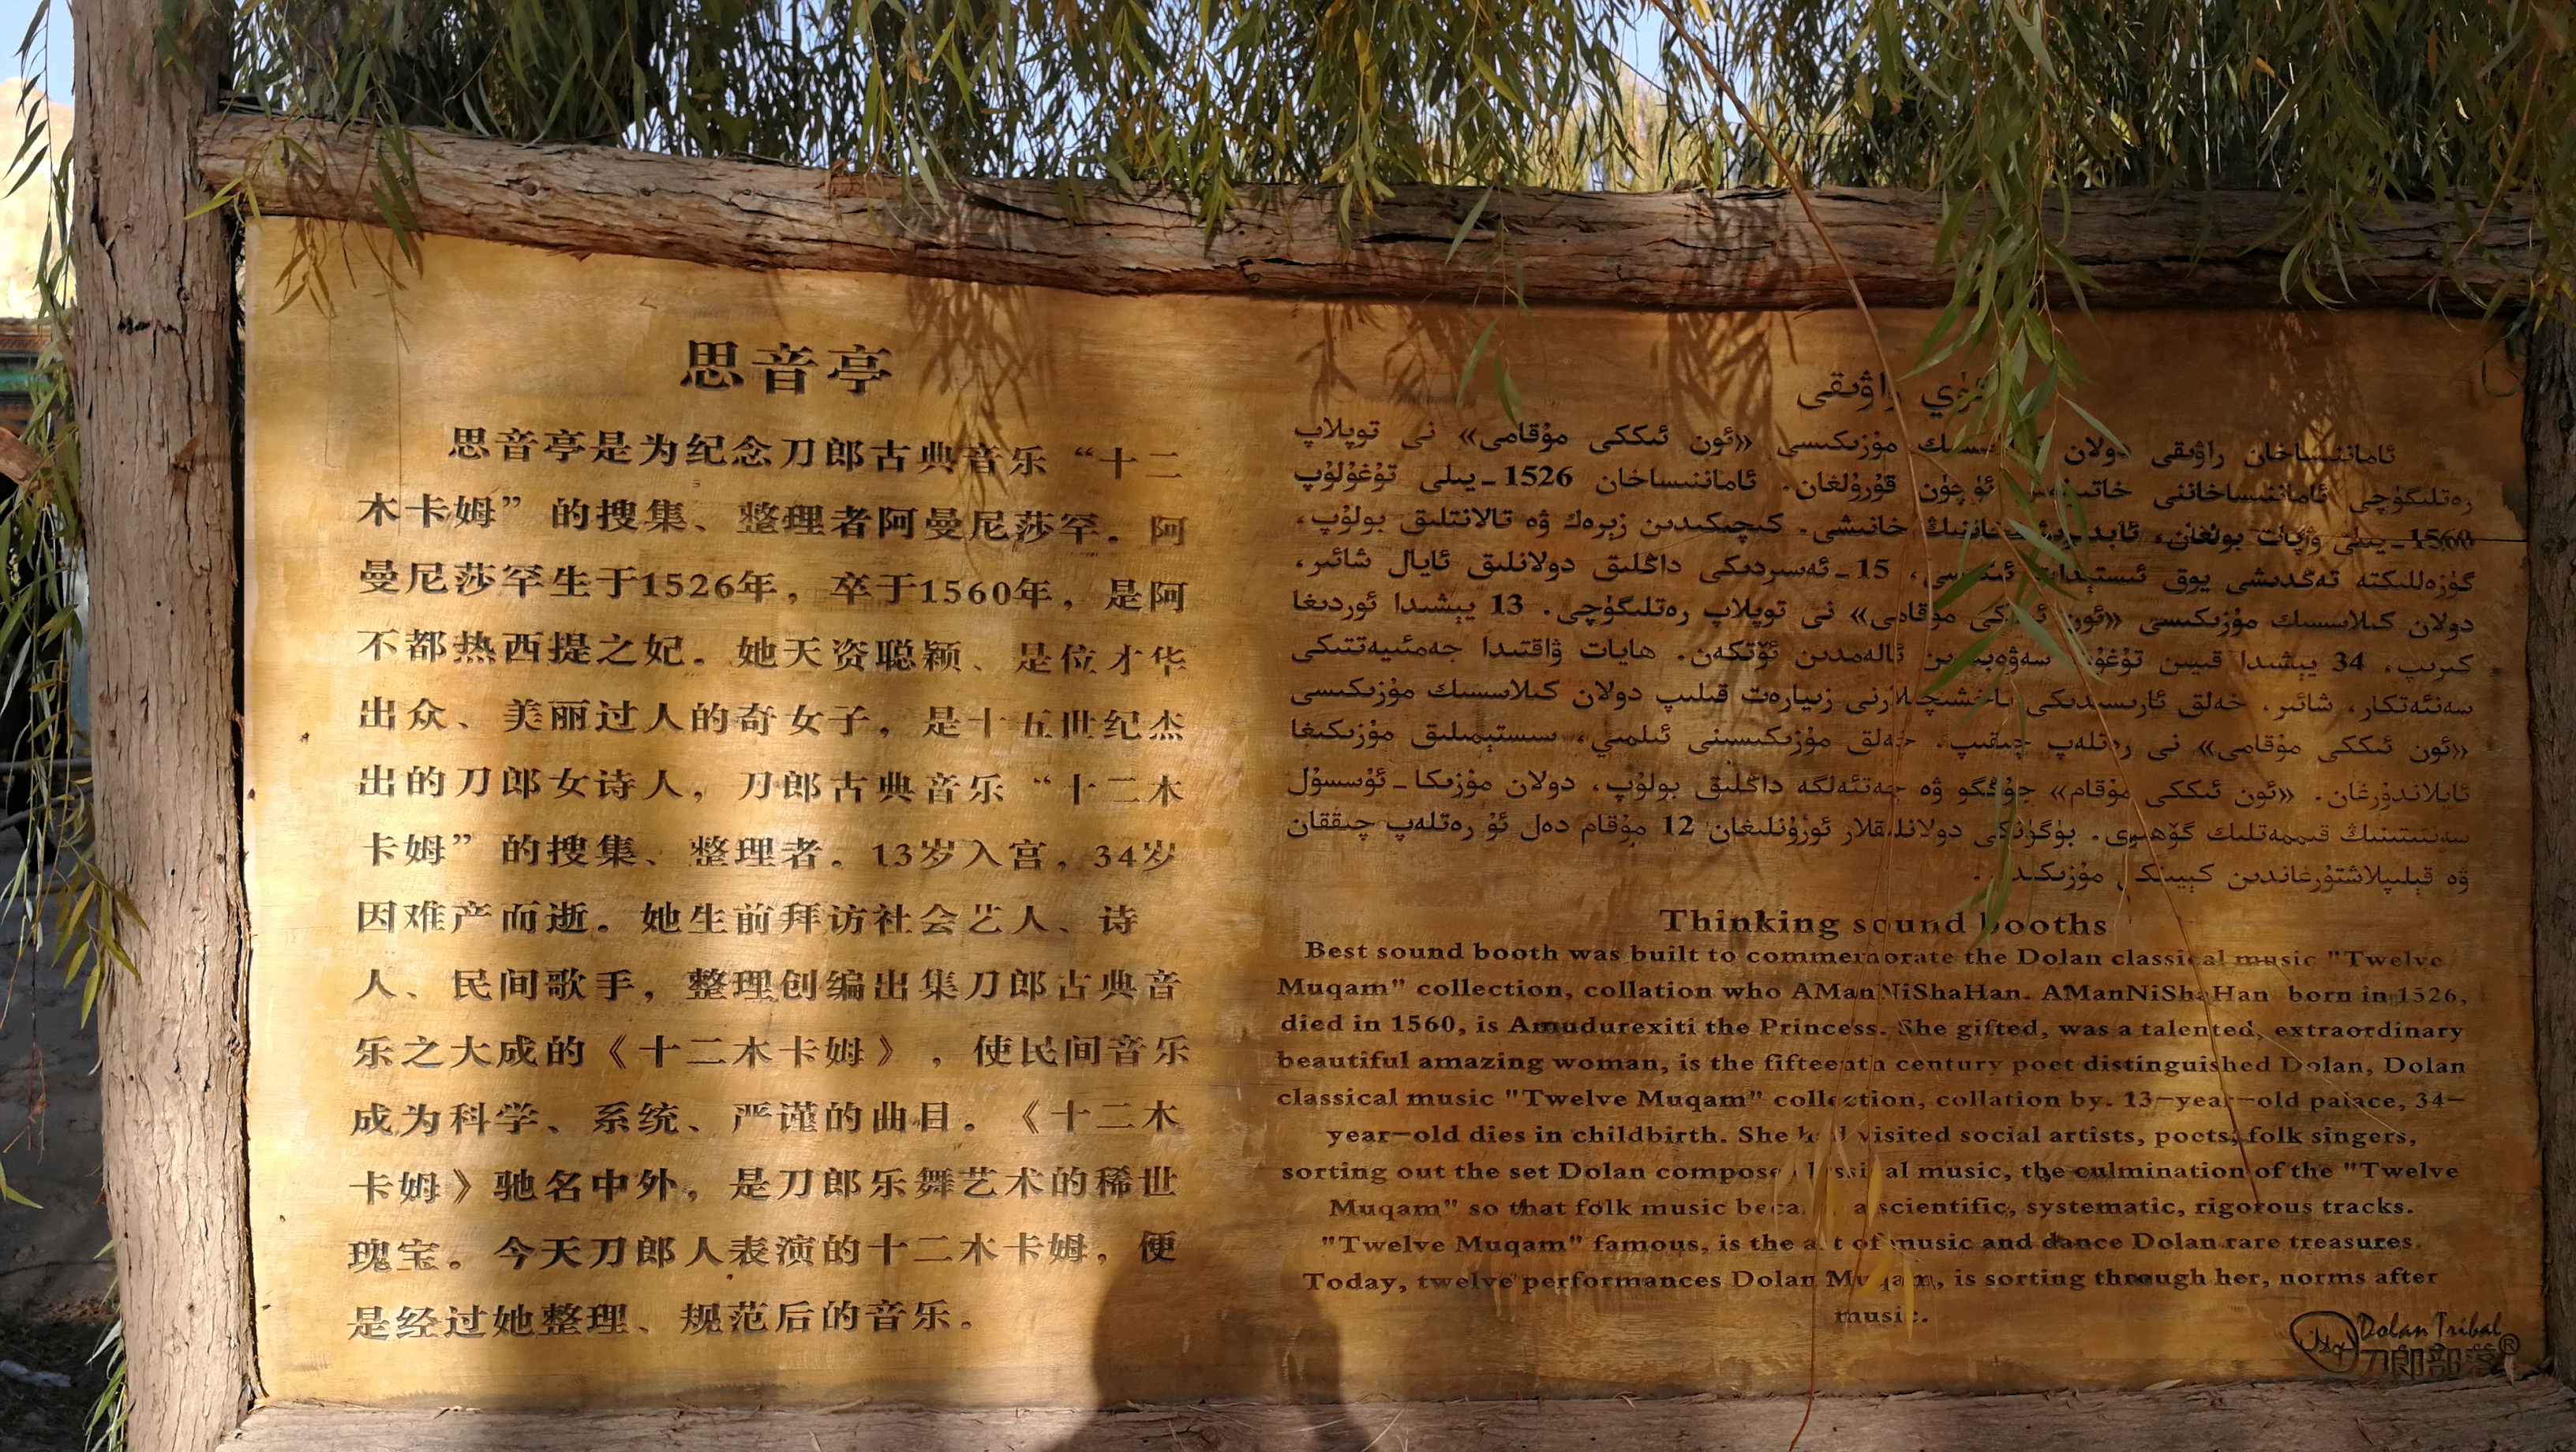 思音亭
思音亭是为纪念刀郎古典音乐“十二
木卡姆”的搜集、整理者阿曼尼莎罕。阿
曼尼莎罕生于1526年，卒于1560年，是阿
不都热西提之妃。她天资聪颖、是位才华
出众、美丽过人的奇女子，是十五世纪杰
出的刀郎女诗人，刀郎古典音乐“十二木
卡姆”的搜集、整理者。13岁入宫，34岁
因难产而逝。她生前拜访社会艺人、诗
人、民间歌手，整理创编出集刀郎古典音
乐之大成的《十二木卡姆》，使民间音乐
成为科学、系统、严谨的曲目。《十二木
卡姆》驰名中外，是刀郎乐舞艺术的稀世
瑰宝。今天刀郎人表演的十二木卡姆，便
是经过她整理、规范后的音乐。
راۋىقى
ئاماننىساخان راۋىقى دولان مۇزىكىسى «ئون ئىككى مۇقامى» نى توپلاپ
رەتلىگۈچى ئاماننىساخاننى ئۈچۈن قۇرۇلغان. ئاماننىساخان 1526-يىلى تۇغۇلۇپ
1560-يىلى ۋاپات بولغان، خانىشى. كىچىكىدىن زېرەك ۋە تالانتلىق بولۇپ،
گۈزەللىكتە تەڭدىشى يوق ئىستېدات ئىگىسى، 15-ئەسىردىكى داڭلىق دولانلىق ئايال شائىر،
دولان كىلاسسىك مۇزىكىسى «ئون ئىككى مۇقامى» نى توپلاپ رەتلىگۈچى. 13 يېشىدا ئوردىغا
كىرىپ، 34 يېشىدا قىيىن تۇغۇت سەۋەبىدىن ئالەمدىن ئۆتكەن. ھايات ۋاقتىدا جەمئىيەتتىكى
سەنئەتكار، شائىر، خەلق ئارىسىدىكى ناخشىچىلارنى زىيارەت قىلىپ دولان كىلاسسىك مۇزىكىسى
«ئون ئىككى مۇقامى» نى رەتلەپ چىقىپ، خەلق مۇزىكىسىنى ئىلمىي، سىستېمىلىق مۇزىكىغا
ئايلاندۇرغان. «ئون ئىككى مۇقام» جۇڭگو ۋە چەتئەلگە داڭلىق بولۇپ، دولان مۇزىكا-ئۇسسۇل
سەنئىتىنىڭ قىممەتلىك گۆھىرى. بۈگۈنكى دولانلىقلار ئورۇنلىغان 12 مۇقام دەل ئۇ رەتلەپ چىققان
ۋە قېلىپلاشتۇرغاندىن كېيىنكى
Thinking sound booths
Best sound booth was built to commemorate the Dolan classical music "Twelve
Muqam" collection, collation who AManNiShaHan. AManNiShaHan born in 1526,
died in 1560, is Amudurexiti the Princess. She gifted, was a talented, extraordinary
beautiful amazing woman, is the fifteenth century poet distinguished Dolan, Dolan
classical music "Twelve Muqam" collection, collation by. 13-year-old palace, 34-
year-old dies in childbirth. She had visited social artists, poets, folk singers,
sorting out the set Dolan music, the culmination of the "Twelve
Muqam" so that folk music a scientific, systematic, rigorous tracks.
"Twelve Muqam" famous, is the art of music and dance Dolan rare treasures.
Today, twelve performances Dolan Muqam, is sorting through her, norms after
music.
Dolan Tribal
刀郎部落®